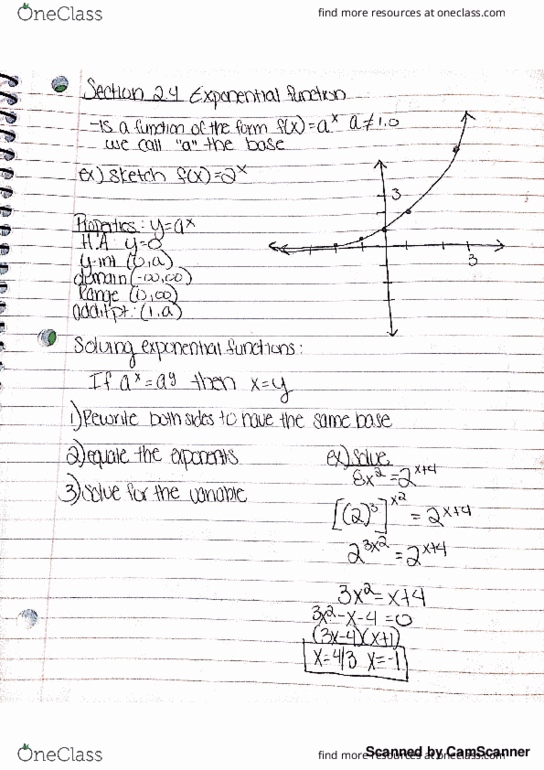 OneClass
find more resources at oneclass.com
Section 2.4 Exponential function
-Is a function of the form f(x)=aˣ a≠1,0
we call "a" the base
ex) sketch f(x)=2ˣ
3
3
Properties: y=aˣ
H.A: y=0
y-int (0,a)
domain (-∞,∞)
Range (0,∞)
addit pt: (1,a)
Solving exponential functions:
If aˣ=aʸ then x=y
1) Rewrite both sides to have the same base
2) equate the exponents
3) Solve for the variable
ex) solve
8x²=2ˣ⁺⁴
[(2)³]ˣ² = 2ˣ⁺⁴
2³ˣ² = 2ˣ⁺⁴
3x²=x+4
3x²-x-4=0
(3x-4)(x+1)
x=4/3 x=-1
OneClass
find more resources at oneclass.com
Scanned by CamScanner